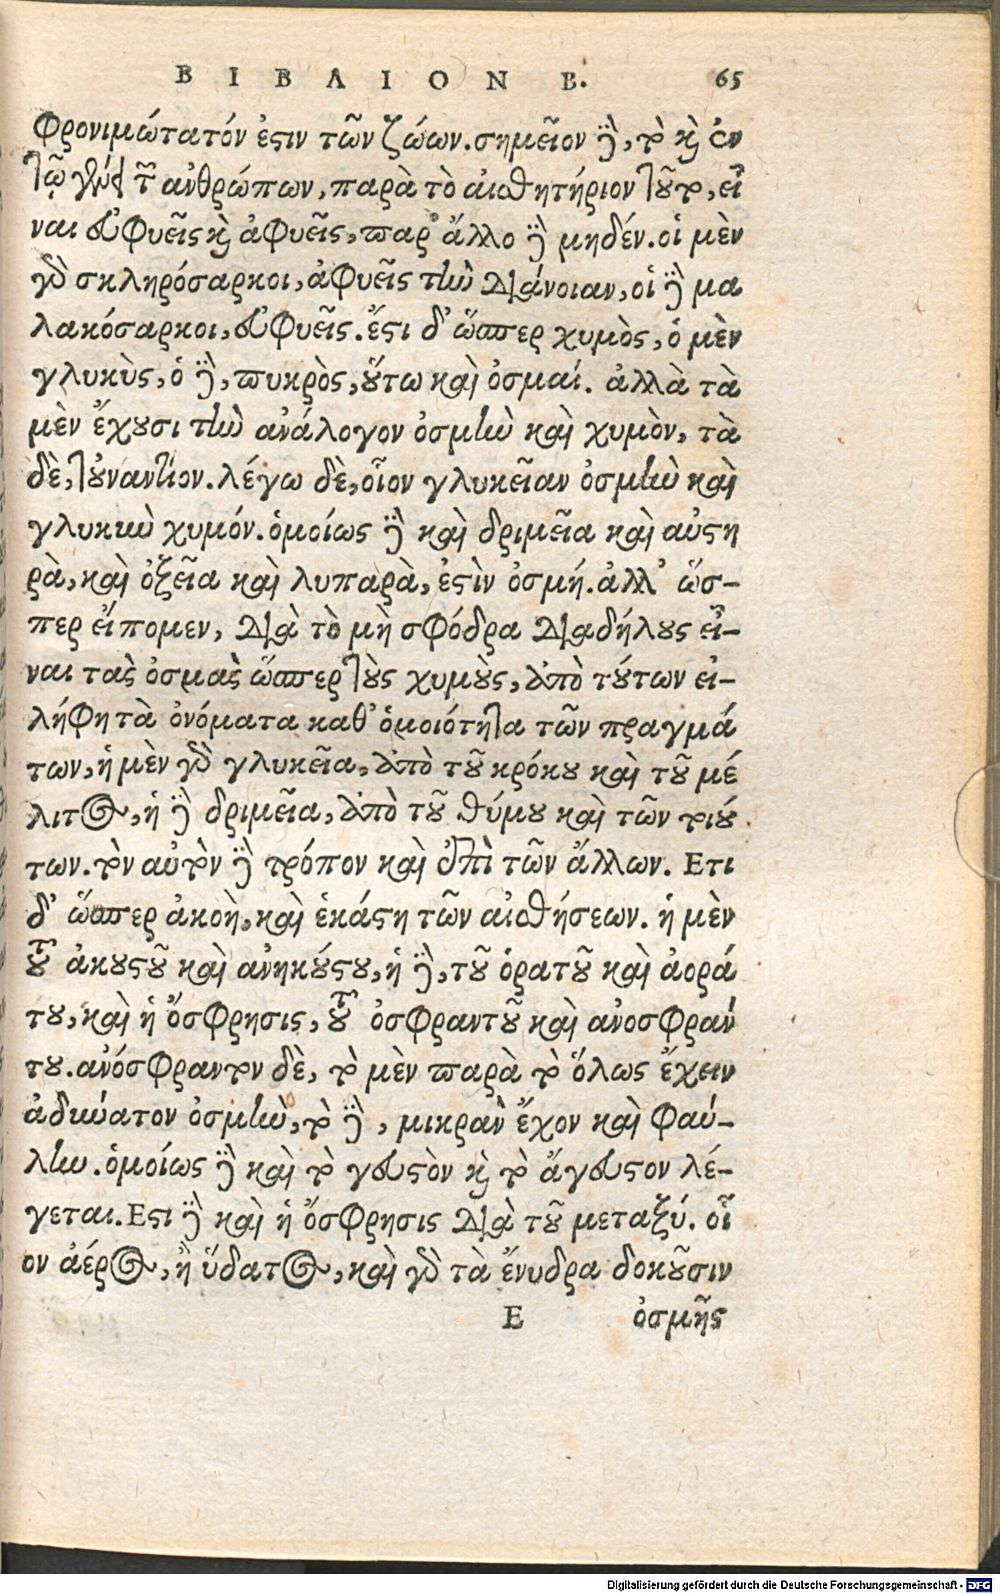 ΒΙΒΛΙΟΝ Β. 65
φρονιμώτατόν ἐστιν τῶν ζώων. σημεῖον δὲ, τὸ καὶ ἐν
τῷ γένει τῶν ἀνθρώπων, παρὰ τὸ αἰσθητήριον τοῦτο, εἶ
ναι εὐφυεῖς καὶ ἀφυεῖς, παρ' ἄλλο δὲ μηδέν. οἱ μὲν
γὰρ σκληρόσαρκοι, ἀφυεῖς τὴν διάνοιαν, οἱ δὲ μα
λακόσαρκοι, εὐφυεῖς. ἔστι δ' ὥσπερ χυμὸς, ὁ μὲν
γλυκὺς, ὁ δὲ, πικρὸς, οὕτω καὶ ὀσμαί. ἀλλὰ τὰ
μὲν ἔχουσι τὴν ἀνάλογον ὀσμὴν καὶ χυμὸν, τὰ
δὲ, τοὐναντίον. λέγω δὲ, οἷον γλυκεῖαν ὀσμὴν καὶ
γλυκὺν χυμόν. ὁμοίως δὲ καὶ δριμεῖα καὶ αὐστη
ρὰ, καὶ ὀξεῖα καὶ λυπαρὰ, ἐστὶν ὀσμή. ἀλλ' ὥσ-
περ εἴπομεν, διὰ τὸ μὴ σφόδρα διαδήλους εἶ-
ναι τὰς ὀσμὰς ὥσπερ τοὺς χυμοὺς, ἀπὸ τούτων εἰ-
λήφη τὰ ὀνόματα καθ' ὁμοιότητα τῶν πραγμά
των, ἡ μὲν γὰρ γλυκεῖα, ἀπὸ τοῦ κρόκου καὶ τοῦ μέ
λιτος, ἡ δὲ δριμεῖα, ἀπὸ τοῦ θύμου καὶ τῶν τοιού
των. τὸν αὐτὸν δὲ τρόπον καὶ ἐπὶ τῶν ἄλλων. Ετι
δ' ὥσπερ ἀκοὴ, καὶ ἑκάστη τῶν αἰσθήσεων. ἡ μὲν
τοῦ ἀκουστοῦ καὶ ἀνηκούστου, ἡ δὲ, τοῦ ὁρατοῦ καὶ ἀορά
του, καὶ ἡ ὄσφρησις, τοῦ ὀσφραντοῦ καὶ ἀνοσφράν
του. ἀνόσφραντον δὲ, τὸ μὲν παρὰ τὸ ὅλως ἔχειν
ἀδύνατον ὀσμὴν, τὸ δὲ, μικρὰν ἔχον καὶ φαύ-
λην. ὁμοίως δὲ καὶ τὸ γευστὸν καὶ τὸ ἄγευστον λέ-
γεται. Εστι δὲ καὶ ἡ ὄσφρησις διὰ τοῦ μεταξύ. οἷ
ον ἀέρος, ἢ ὕδατος, καὶ γὰρ τὰ ἔνυδρα δοκοῦσιν
Ε ὀσμῆς
Digitalisierung gefördert durch die Deutsche Forschungsgemeinschaft - DFG